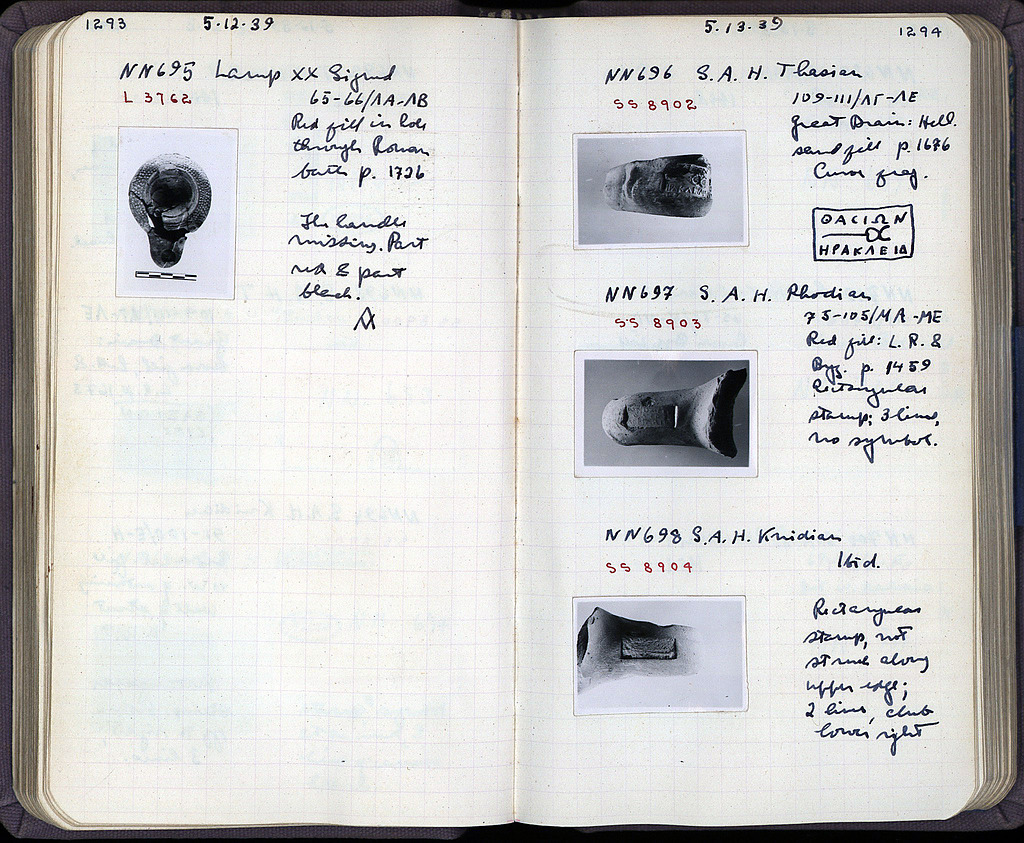 1293
5·12·39
NN695 Lamp XX Signed
L 3762
65-66/ΛΑ-ΛΒ
Red fill in hole
through Roman
bath p. 1726
The handle
missing. Part
red & part
black.
5·13·39
1294
NN696 S.A.H. Thasian
SS 8902
109-111/ΛΓ-ΛΕ
Great Drain: Hell.
sand fill p. 1676
Curve frag.
ΘΑCΙΩΝ
ΗΡΑΚΛΕΙΔ
NN697 S.A.H. Rhodian
SS 8903
75-105/ΜΑ-ΜΕ
Red fill: L.R. &
Byz. p. 1459
Rectangular
stamp; 3 lines,
no symbol.
NN698 S.A.H. Knidian
SS 8904
Ibid.
Rectangular
stamp, not
struck along
upper edge;
2 lines, club
lower right